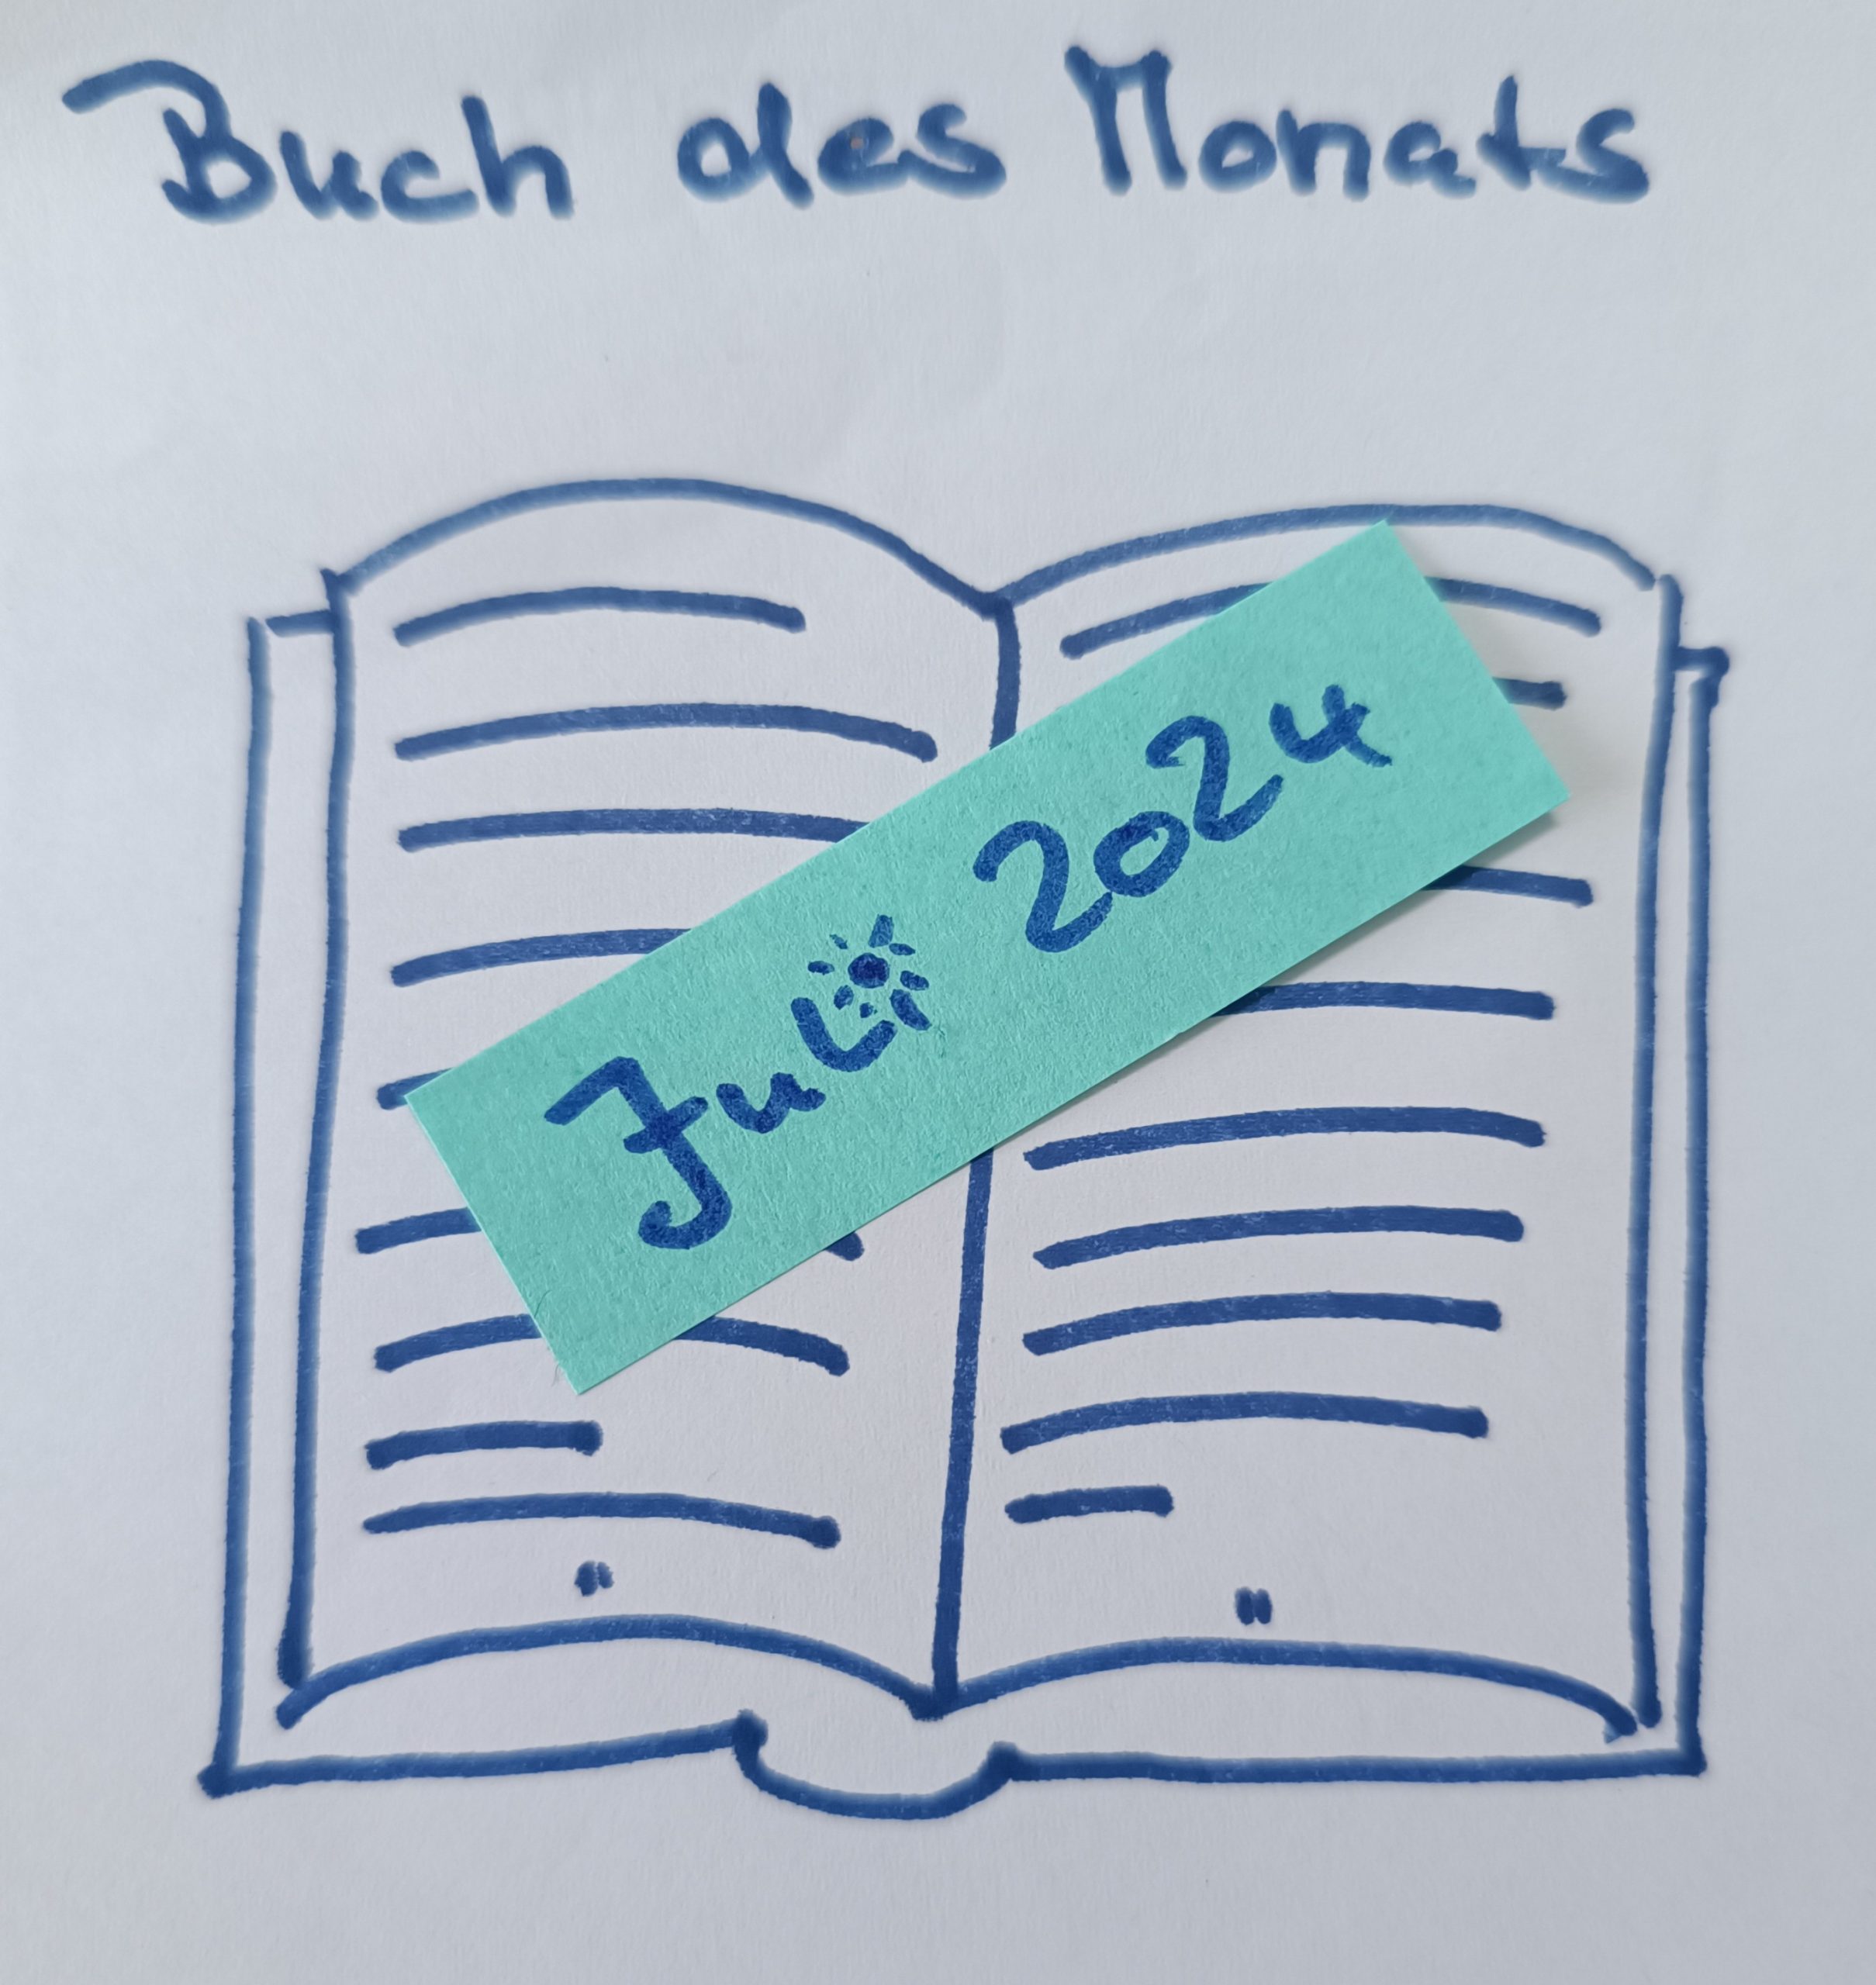 Buch des Monats
Juli 2024